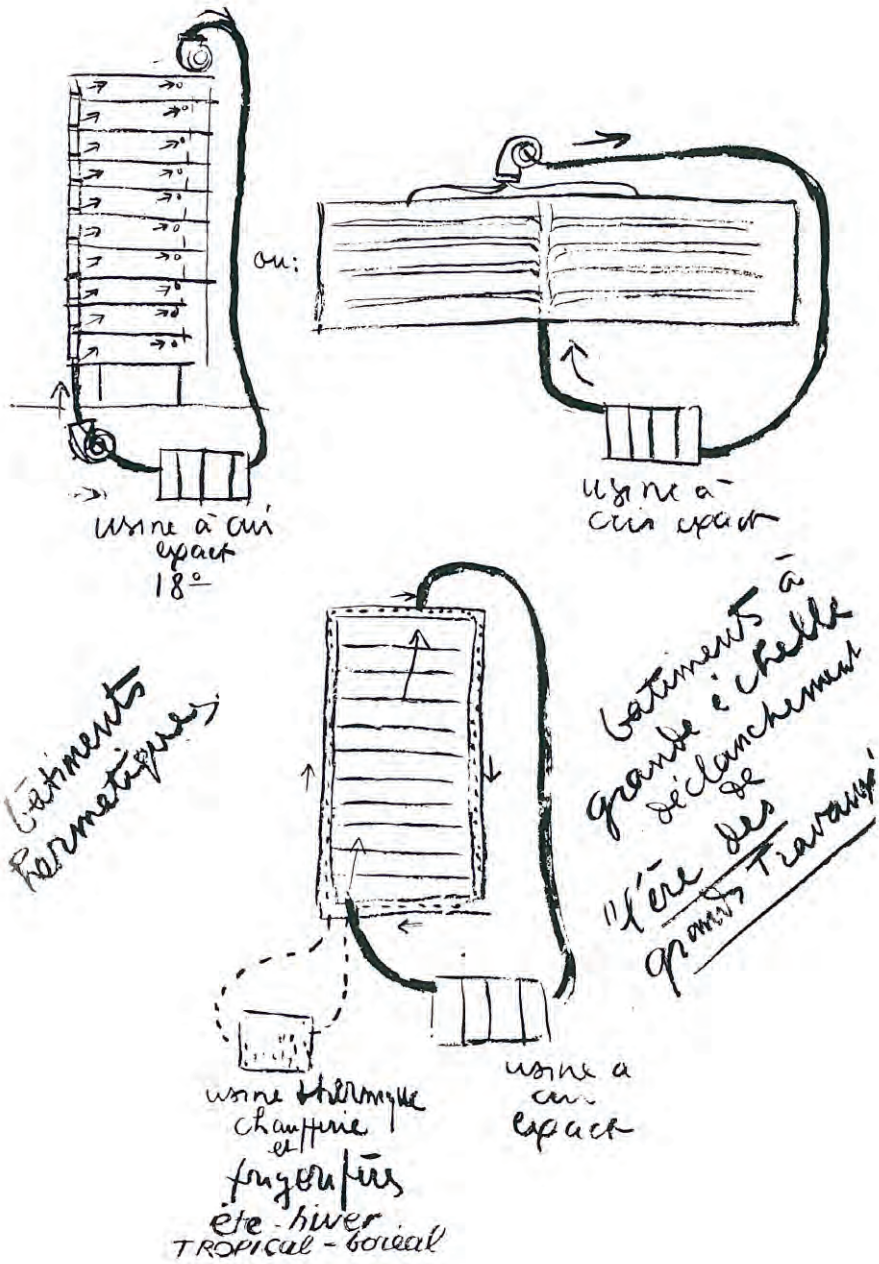 ou:
usine à air
exact
18°
usine à
air exact
bâtiments
hermétiques
bâtiments à
grande échelle
déclanchement
de
"l'ère des
grands Travaux
usine thermique
chaufferie
et
frigorifères
été - hiver
TROPICAL - boréal
usine a
air
exact